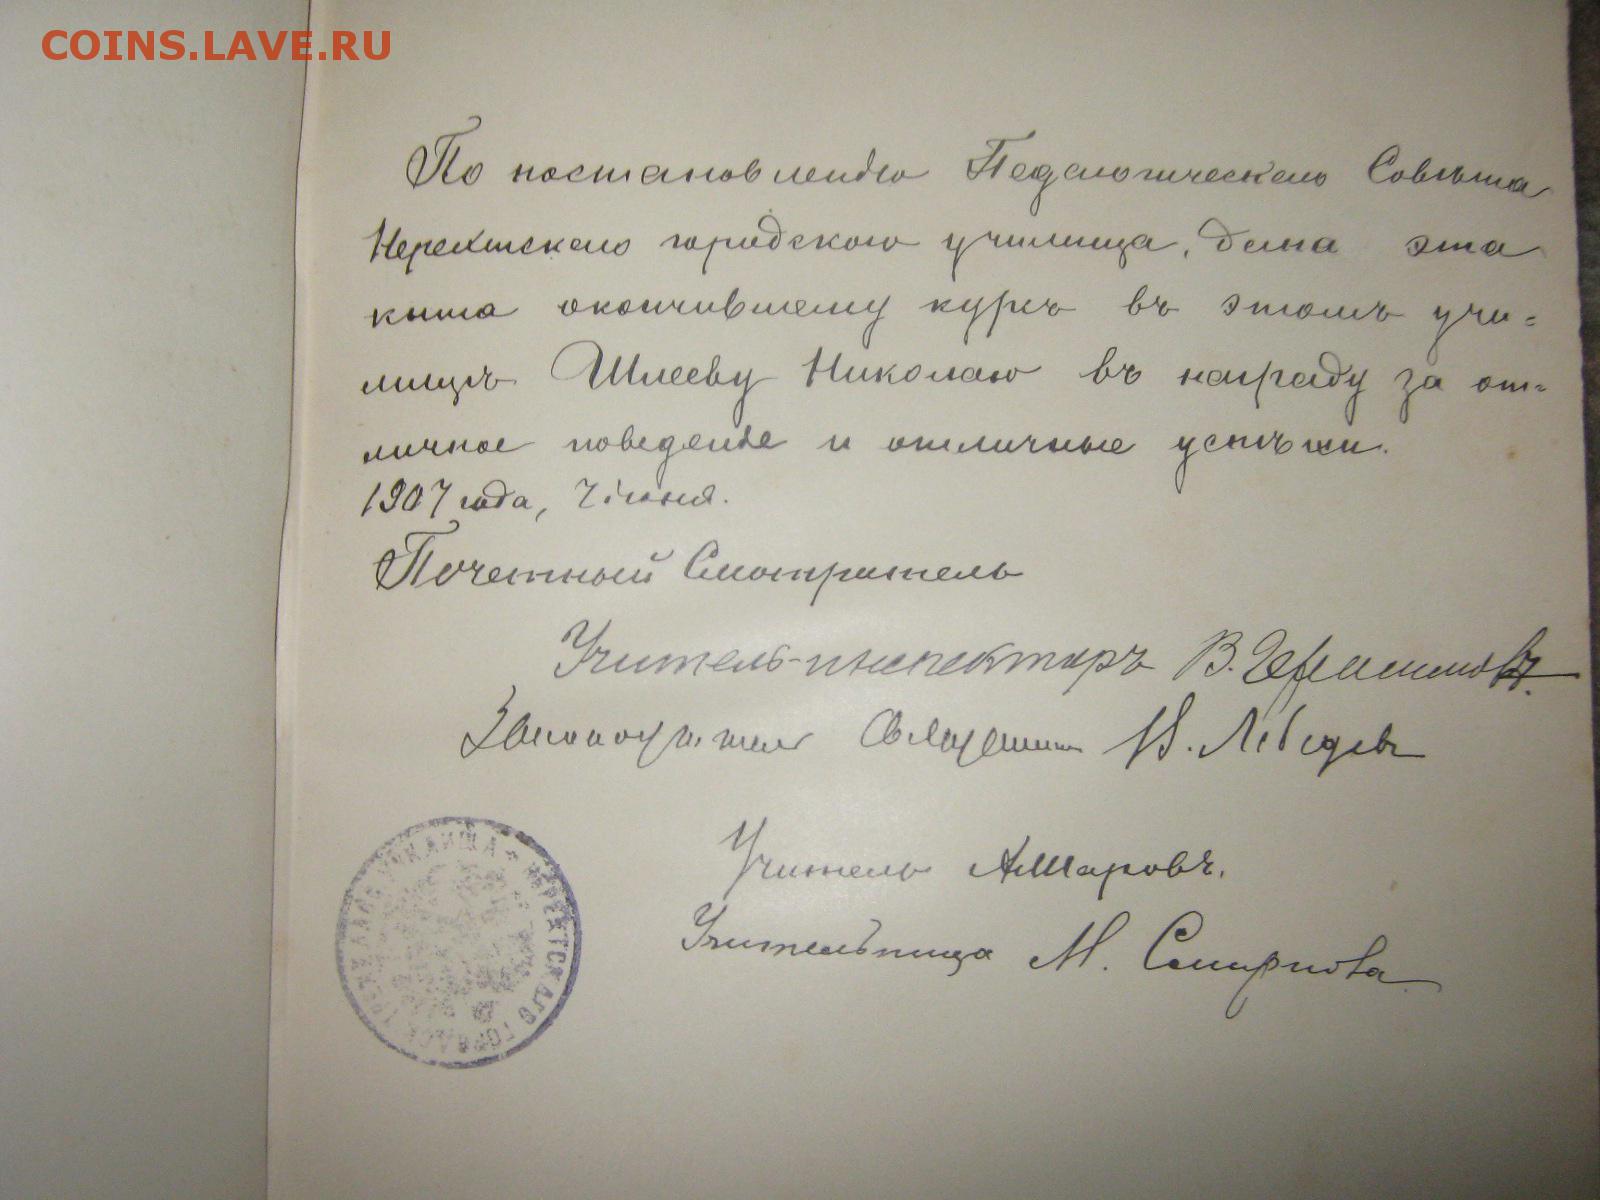 COINS.LAVE.RU
По постановленію Педагогическаго Совѣта
Нерехтскаго городского училища, дана эта
книга окончившему курсъ въ этомъ учи=
лищѣ Шлееву Николаю въ награду за от=
личное поведеніе и отличные успѣхи.
1907 года, 7 іюня.
Почетный Смотритель
Учитель-инспекторъ В. Герасимовъ.
Законоучитель Священникъ В. Лебедевъ
Учитель А. Шаровъ.
Учительница М. Смирнова
НЕРЕХТСКАГО ГОРОДСК УЧИЛИЩА